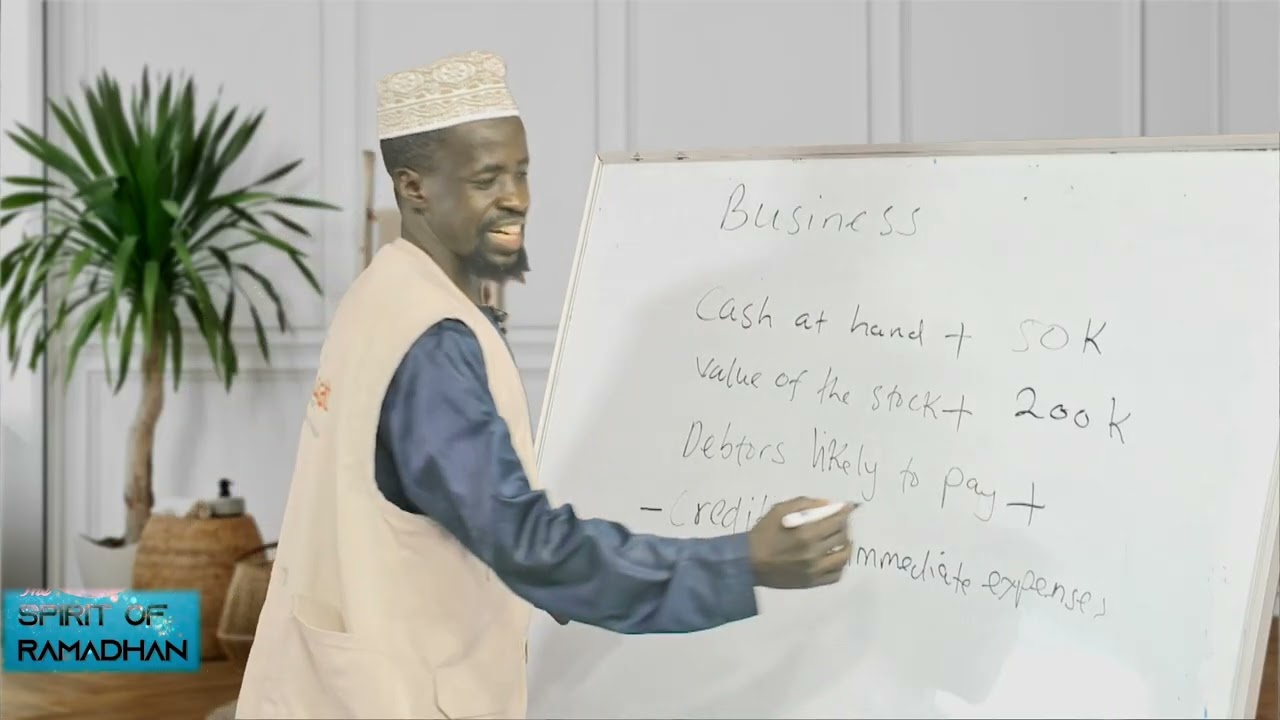 Business
Cash at hand + 50K
Value of the stock + 200K
Debtors likely to pay +
- Credit
immediate expenses
The
SPIRIT OF
RAMADHAN